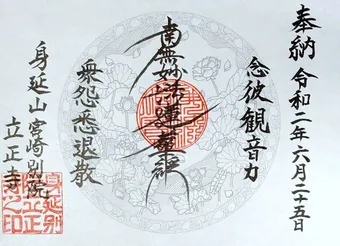 奉納 令和二年六月二十五日
念彼観音力
南無妙法蓮華経
衆怨悉退散
身延山 宮崎別院
立正寺